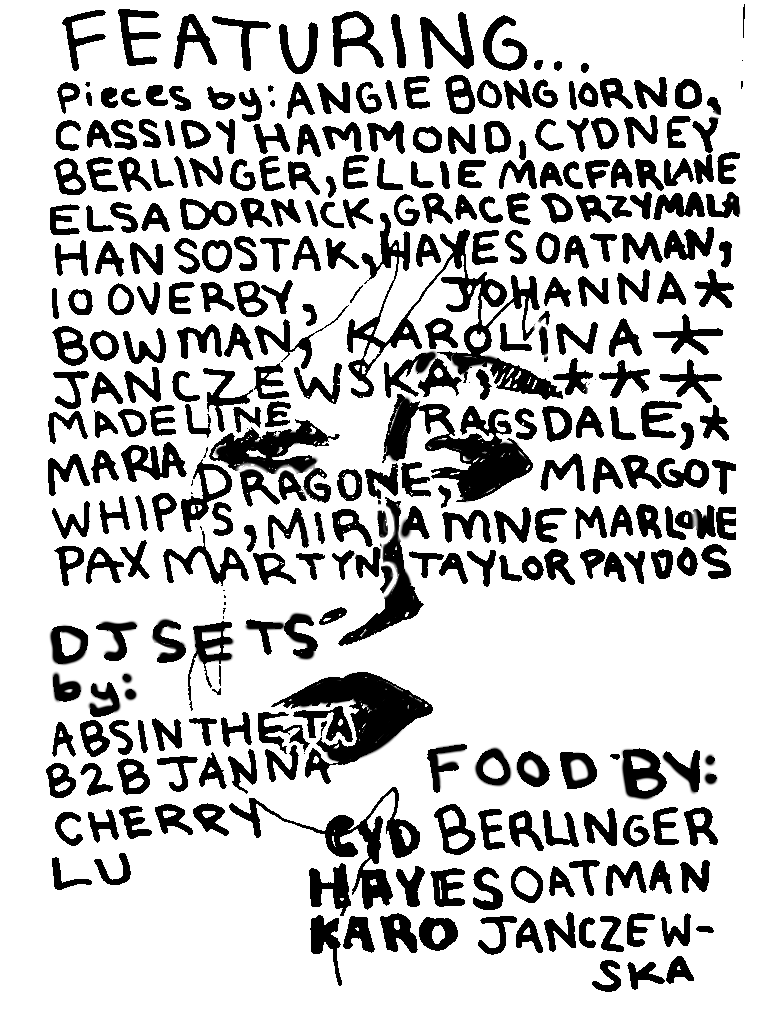 FEATURING...
Pieces by: ANGIE BONGIORNO,
CASSIDY HAMMOND, CYDNEY
BERLINGER, ELLIE MACFARLANE
ELSA DORNICK, GRACE DRZYMALA
HAN SOSTAK, HAYES OATMAN,
IO OVERBY, JOHANNA *
BOWMAN, KAROLINA *
JANCZEWSKA, * * *
MADELINE RAGSDALE, *
MARIA DRAGONE, MARGOT
WHIPPS, MIRIAM NNE MARLOWE
PAX MARTYN, TAYLOR PAYDOS
DJ SETS
by:
ABSINTHETA
B2B JANNA
CHERRY
LU
FOOD BY:
CYD BERLINGER
HAYES OATMAN
KARO JANCZEW-
SKA